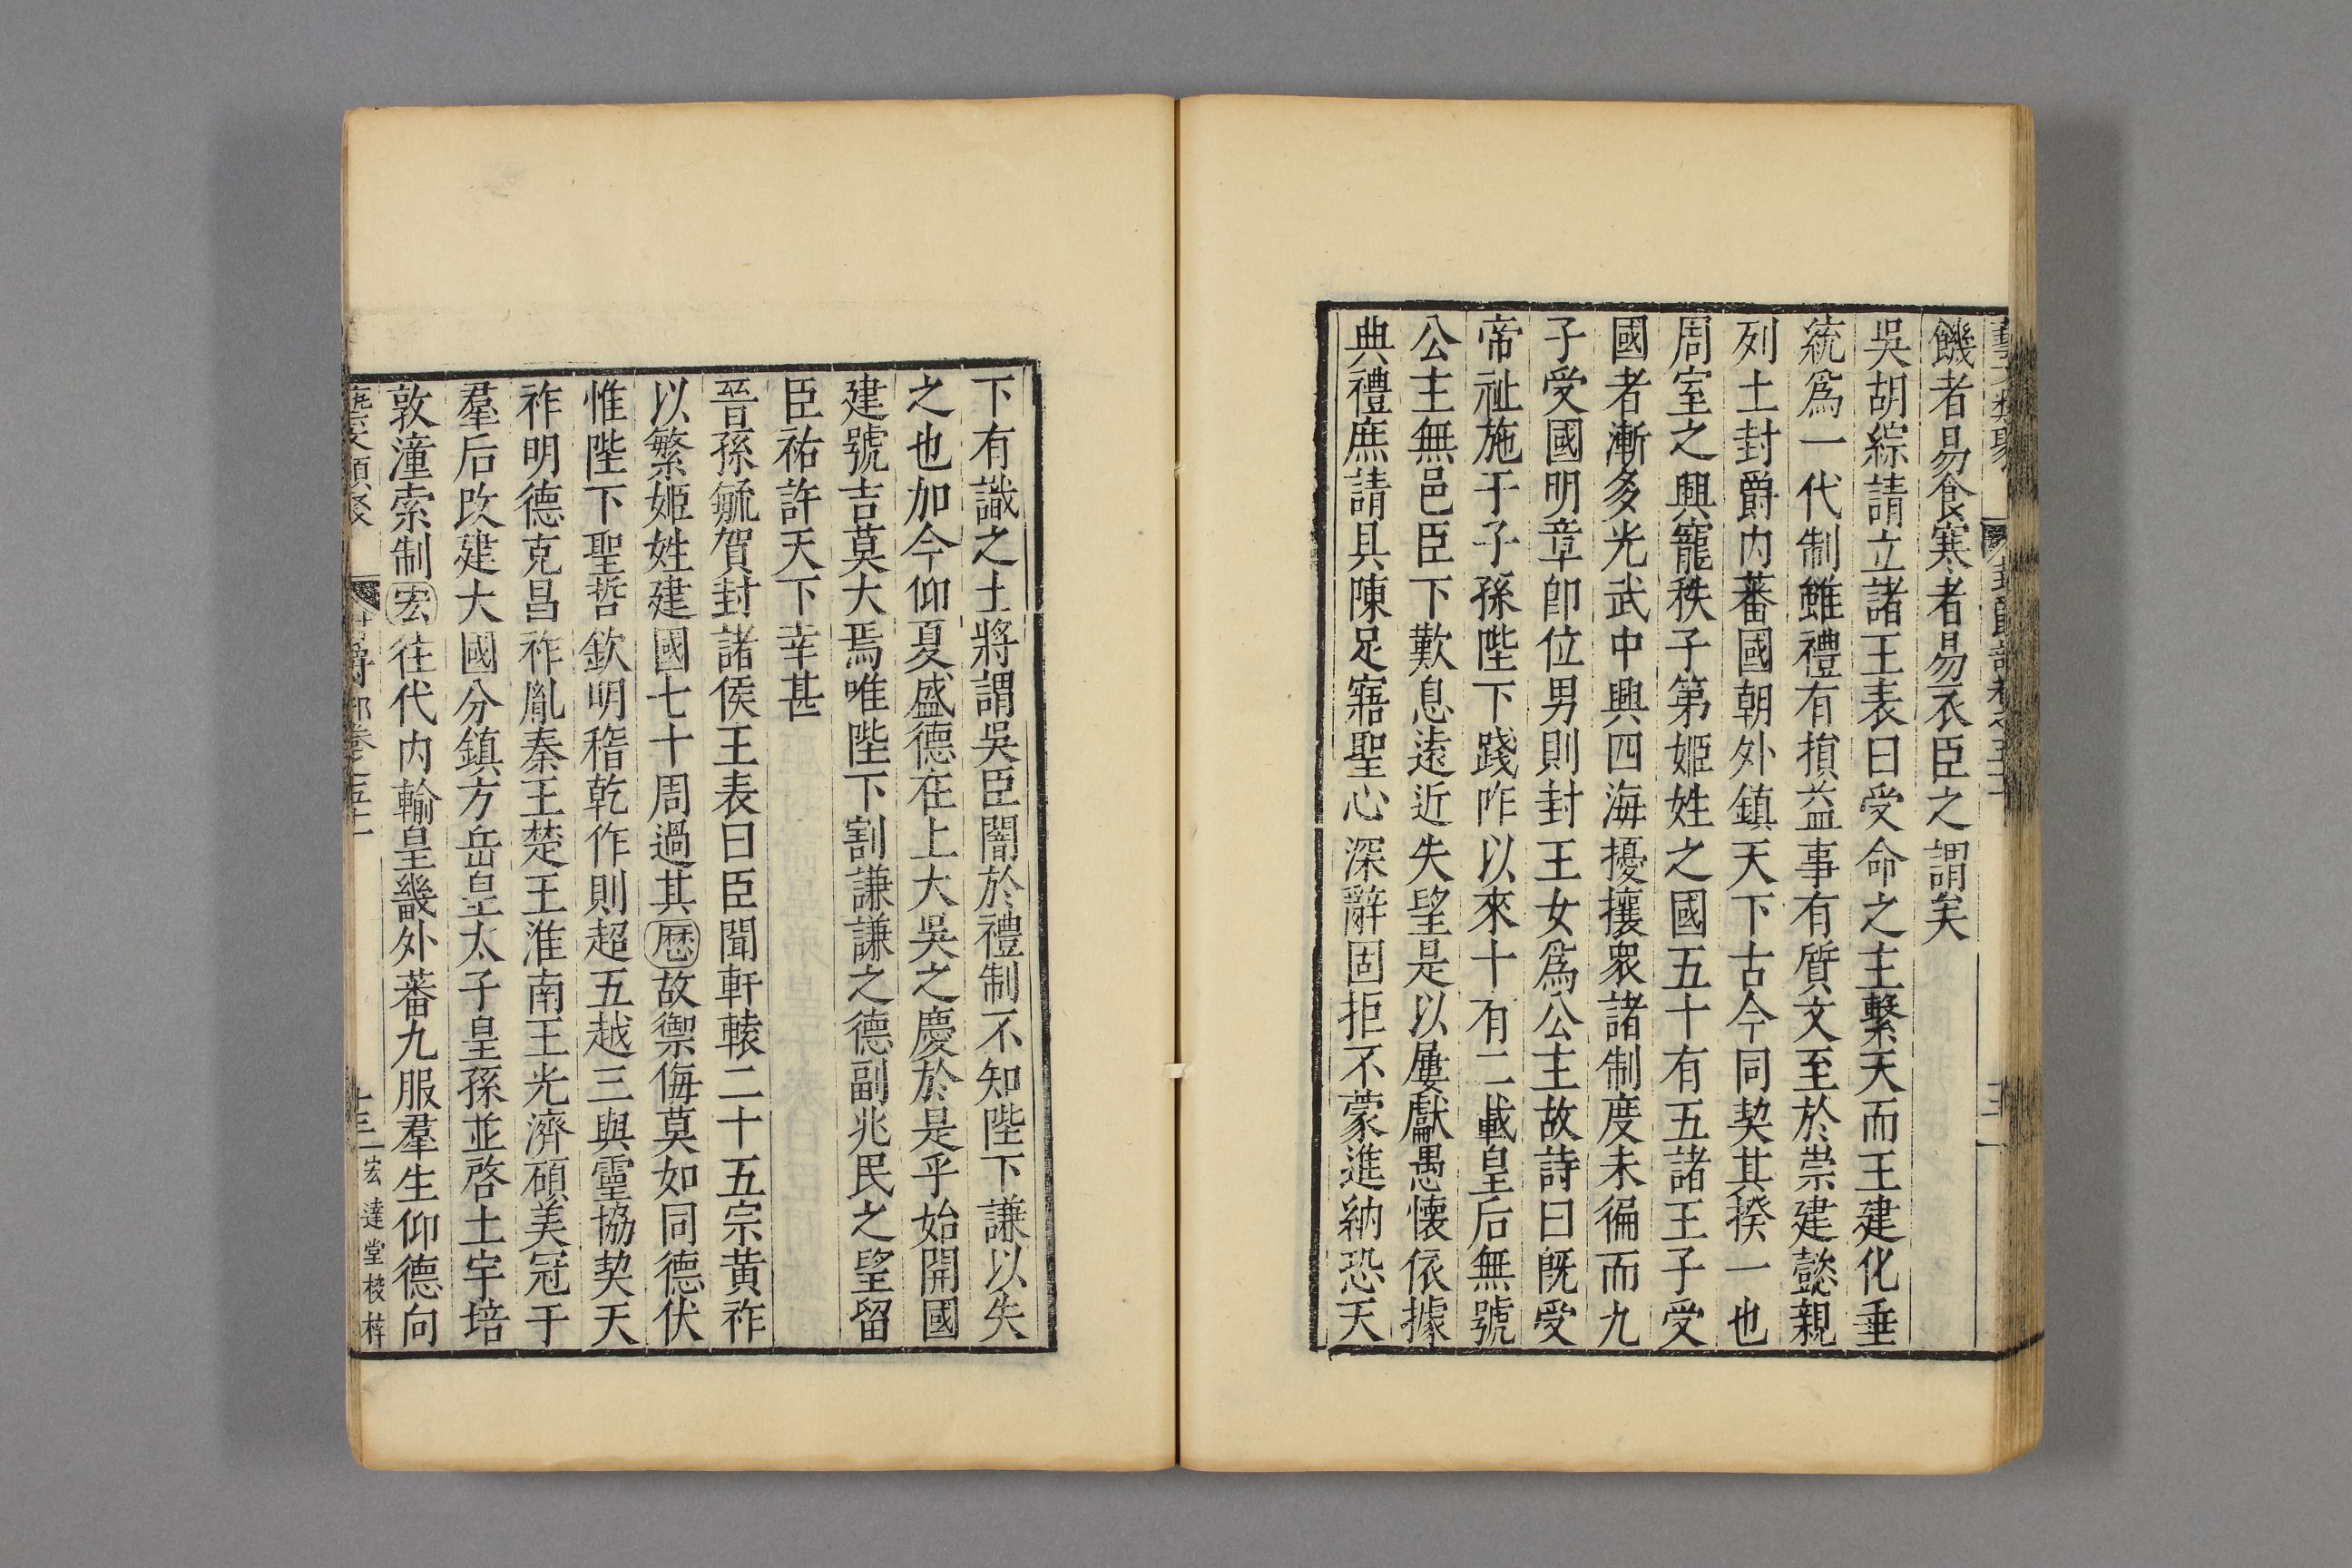 藝文類聚 封爵部卷之五十一 十二
饑者易食寒者易衣臣之謂矣
吳胡綜請立諸王表曰受命之主繫天而王建化垂
統爲一代制雖禮有損益事有質文至於崇建懿親
列土封爵内蕃國朝外鎮天下古今同契其揆一也
周室之興寵秩子第姬姓之國五十有五諸王子受
國者漸多光武中興四海擾攘衆諸制度未徧而九
子受國明章卽位男則封王女爲公主故詩曰旣受
帝祉施于子孫陛下踐阼以來十有二載皇后無號
公主無邑臣下歎息遠近失望是以屢獻愚懷依據
典禮庶請具陳足寤聖心深辭固拒不蒙進納恐天
下有識之士將謂吳臣闇於禮制不知陛下謙以失
之也加今仰夏盛德在上大吳之慶於是乎始開國
建號吉莫大焉唯陛下割謙謙之德副兆民之望留
臣祐許天下幸甚
晉孫毓賀封諸侯王表曰臣聞軒轅二十五宗黄祚
以繁姬姓建國七十周過其歷故禦侮莫如同德伏
惟陛下聖哲欽明稽乾作則超五越三與靈協契天
祚明德克昌祚胤秦王楚王淮南王光濟碩美冠于
羣后改建大國分鎮方岳皇太子皇孫並啓土宇培
敦潼索制宏往代内輸皇畿外蕃九服羣生仰德向
藝文類聚 封爵部卷之五十一 十三 宏達堂校梓